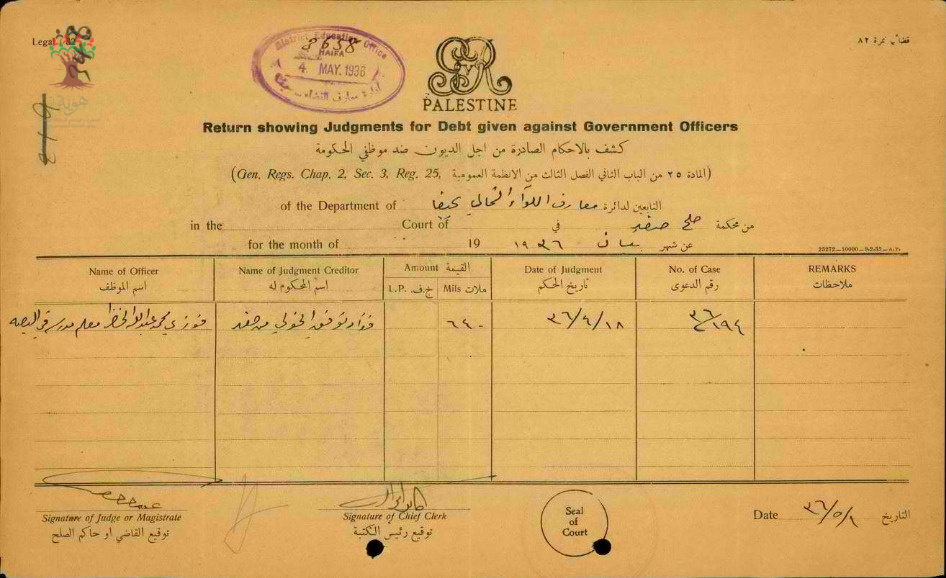 Legal
قضائية نمرة ٨٢
District Education Office
3658
HAIFA
4 MAY. 1936
هوية
PALESTINE
Return showing Judgments for Debt given against Government Officers
كشف بالاحكام الصادرة من اجل الديون ضد موظفي الحكومة
(Gen. Regs. Chap. 2, Sec. 3, Reg. 25, المادة ٢٥ من الباب الثاني الفصل الثالث من الانظمة العمومية)
of the Department of معارف اللواء الشمالي بحيفا التابعين لدائرة
in the Court of في صلح صفد من محكمة
for the month of 19 ١٩٣٦ نيسان عن شهر
25272—10000—9-2-35—A.P.
Name of Officer Name of Judgment Creditor Amount القيمة Date of Judgment No. of Case REMARKS
اسم الموظف اسم المحكوم له L.P. ج.ف. Mils ملات تاريخ الحكم رقم الدعوى ملاحظات
فوزي محمد عبدالله معلم مدرسة فؤاد توفيق الخولي من صفد ٦٤٠ ٣٦/٤/١٨ ٣٦/١٩٤
Signature of Judge or Magistrate
توقيع القاضي او حاكم الصلح
Signature of Chief Clerk
توقيع رئيس الكتبة
Seal
of
Court
Date ٣٦/٥/١ التاريخ